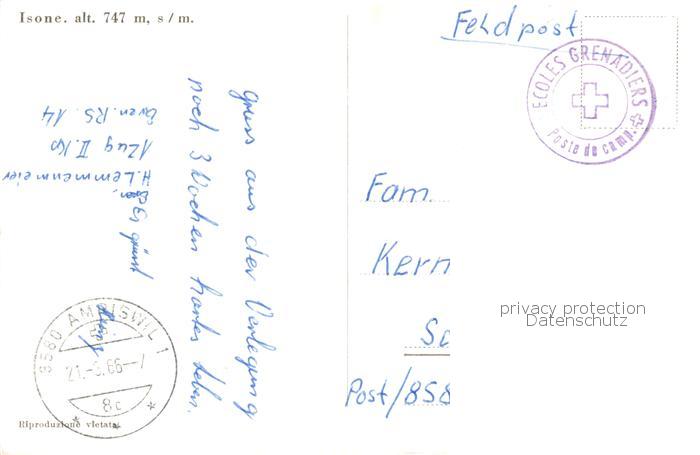 Isone. alt. 747 m, s/m.
Feldpost
ECOLES GRENADIERS
Poste de camp.
Gruss aus der Verlegung
noch 3 Wochen hartes Leben.
Es grüsst
H. Lemmenmeier
1 Zug II. Kp
Gren. RS. 14
Fam.
Kern
Post/858
8580 AMRISWIL 1
66—7
8c
Riproduzione vietata
privacy protection
Datenschutz